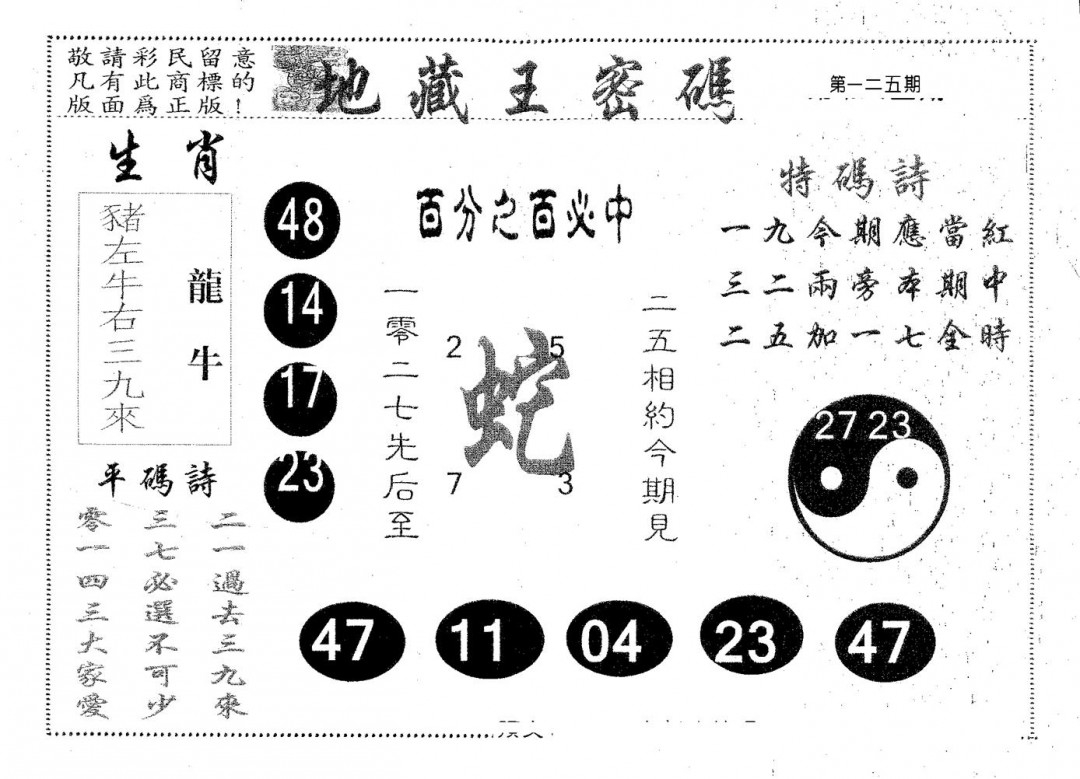 敬請彩民留意
凡有此商標的
版面為正版！
地藏王密碼
第一二五期
生肖
豬左牛右三九來
龍牛
48
14
17
23
百分之百必中
一零二七先后至
2 5
蛇
7 3
二五相約今期見
特碼詩
一九今期應當紅
三二兩旁本期中
二五加一七全時
27 23
平碼詩
二一過去三九來
三七必選不可少
零一四三大家愛
47 11 04 23 47